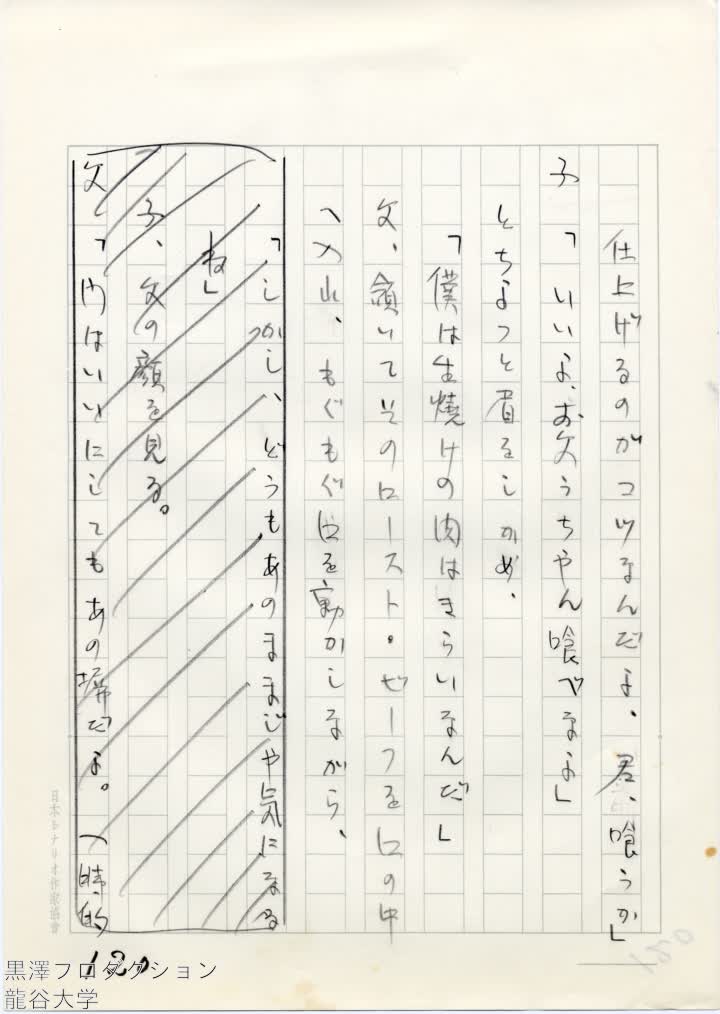 仕上げるのがコツなんだよ、君、喰うか」
子「いいよ、お父うちやん喰べなよ」
とちよつと眉をしかめ、
「僕は生焼けの肉はきらいなんだ」
父、頷いてそのロースト・ビーフを口の中
へ入れ、もぐもぐ口を動かしながら、
「しかし、どうも、あのままじや気になる
ね」
子、父の顔を見る。
父「門はいいにしてもあの塀だよ。
日本シナリオ作家協會
120
黒澤プロダクション
龍谷大学